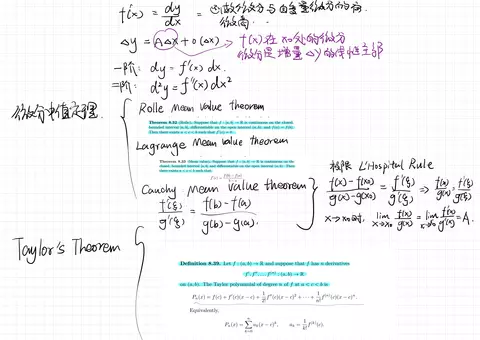 f'(x) = dy/dx = 函数微分与自变量微分的商
微商. . .
Δy = AΔx + o(Δx)
f(x)在x0处的微分
微分是增量Δy的线性主部
一阶: dy = f'(x) dx.
二阶: d²y = f''(x) dx²
微分中值定理.
Rolle Mean Value theorem
Theorem 8.32 (Rolle). Suppose that f : [a, b] → R is continuous on the closed, bounded interval [a, b], differentiable on the open interval (a, b), and f(a) = f(b). Then there exists a < c < b such that f'(c) = 0.
Lagrange Mean value theorem
Theorem 8.33 (Mean value). Suppose that f : [a, b] → R is continuous on the closed, bounded interval [a, b] and differentiable on the open interval (a, b). Then there exists a < c < b such that
f'(c) = (f(b) − f(a))/(b − a)
Cauchy Mean Value theorem
f'(ξ)/g'(ξ) = (f(b) - f(a))/(g(b) - g(a)).
极限 L'Hospital Rule
(f(x) - f(x0))/(g(x) - g(x0)) = f'(ξ)/g'(ξ) ⇒ f(x)/g(x) = f'(ξ)/g'(ξ)
x→x0时, lim x→x0 f(x)/g(x) = lim x→x0 f'(x)/g'(x) = A.
Taylor's Theorem
Definition 8.39. Let f : (a, b) → R and suppose that f has n derivatives
f', f'', . . . f⁽ⁿ⁾ : (a, b) → R
on (a, b). The Taylor polynomial of degree n of f at a < c < b is
Pₙ(x) = f(c) + f'(c)(x − c) + 1/2! f''(c)(x − c)² + · · · + 1/n! f⁽ⁿ⁾(c)(x − c)ⁿ.
Equivalently,
Pₙ(x) = Σ k=0 n aₖ(x − c)ᵏ, aₖ = 1/k! f⁽ᵏ⁾(c).